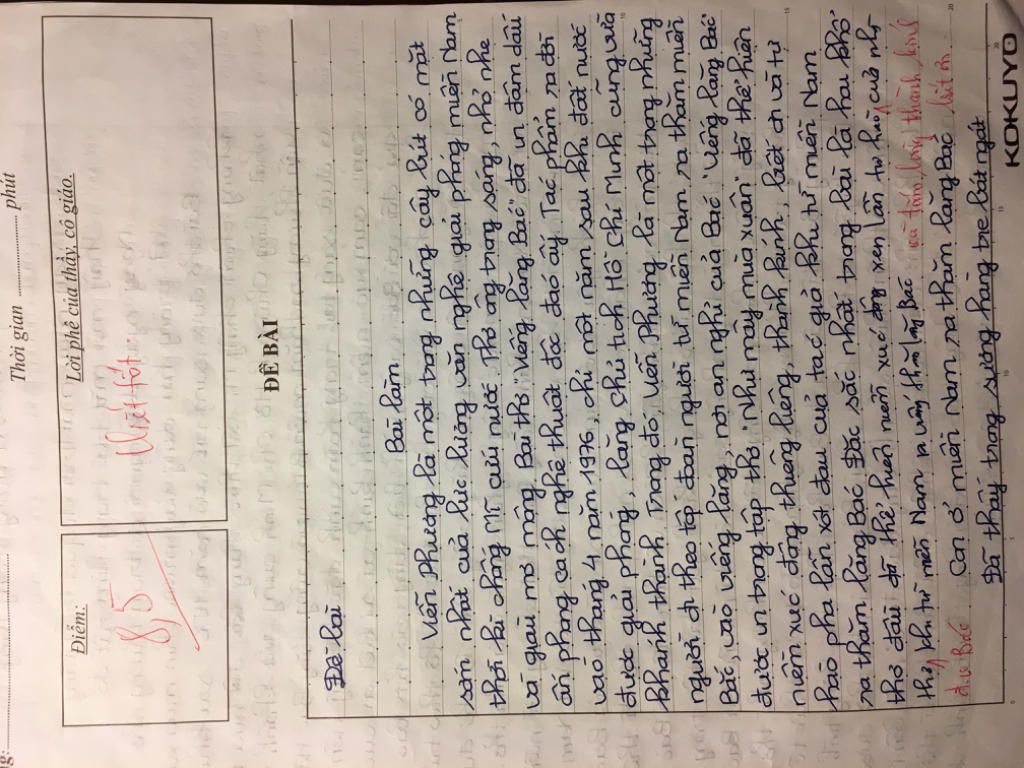 Thời gian ........................ phút
Điểm:
8,5
Lời phê của thầy, cô giáo.
Viết tốt.
ĐỀ BÀI
Đề bài
Bài làm
Viễn Phương là một trong những cây bút có mặt
sớm nhất của lực lượng văn nghệ giải phóng miền Nam
thời kì chống Mĩ cứu nước. Thơ ông trong sáng, nhỏ nhẹ
và giàu mơ mộng. Bài thơ "Viếng lăng Bác" đã in đậm dấu
ấn phong cách nghệ thuật độc đáo ấy. Tác phẩm ra đời
vào tháng 4 năm 1976, chỉ một năm sau khi đất nước
được giải phóng, lăng Chủ tịch Hồ Chí Minh cũng vừa
khánh thành. Trong đó, Viễn Phương là một trong những
người đi theo tập đoàn người từ miền Nam ra thăm miền
Bắc, vào viếng lăng, nơi an nghỉ của Bác. "Viếng lăng Bác"
được in trong tập thơ "Như mây mùa xuân" đã thể hiện
niềm xúc động thiêng liêng, thành kính, biết ơn và tự
hào pha lẫn xót đau của tác giả khi từ miền Nam
ra thăm lăng Bác. Đặc sắc nhất trong bài là hai khổ
thơ đầu đã thể hiện niềm xúc động xen lẫn tự hào của nhà
thơ khi từ miền Nam ra viếng thăm lăng Bác và tấm lòng thành kính
biết ơn
Con ở miền Nam ra thăm lăng Bác
Đã thấy trong sương hàng tre bát ngát
KOKUYO